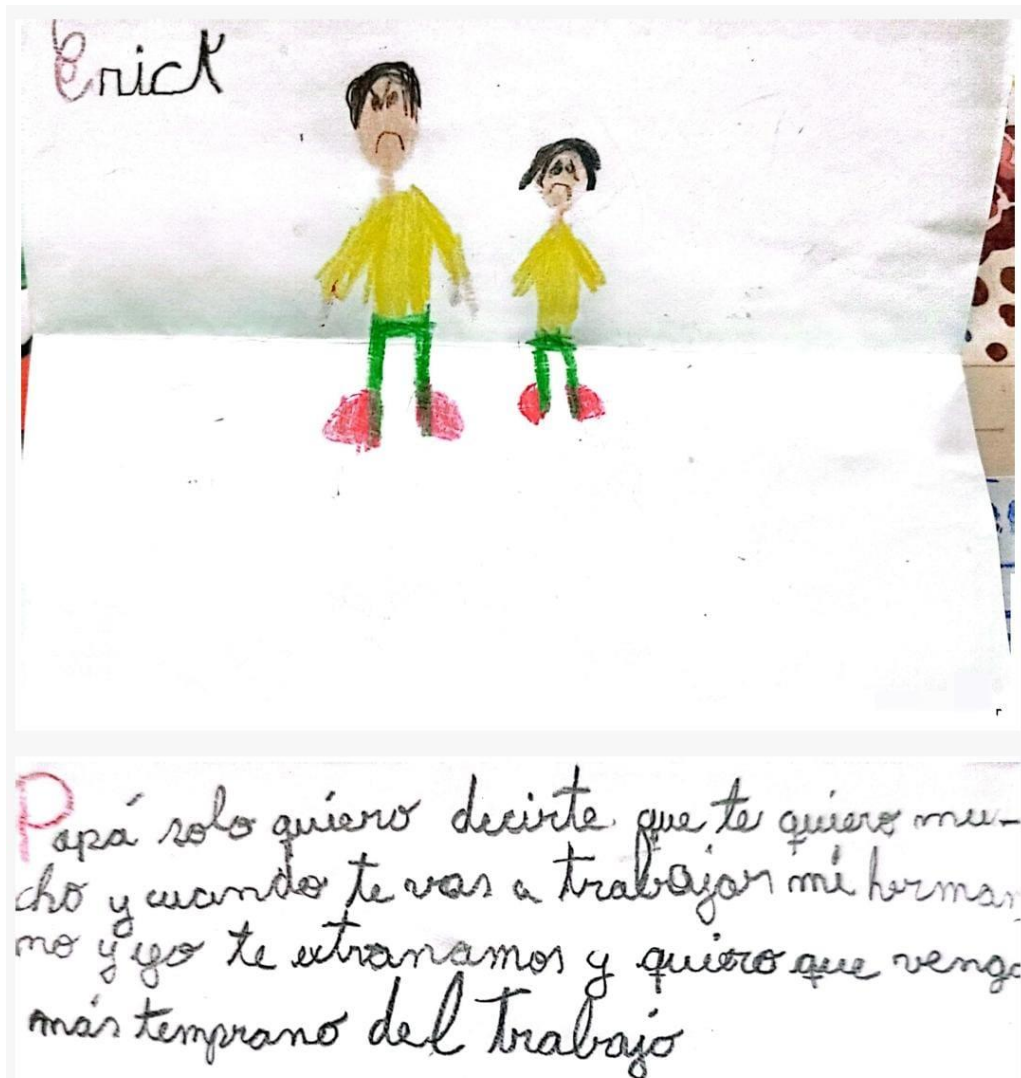 Erick
Papá solo quiero decirte que te quiero mu-
cho y cuando te vas a trabajar mi herman
no y yo te extranamos y quiero que venga
más temprano del trabajo